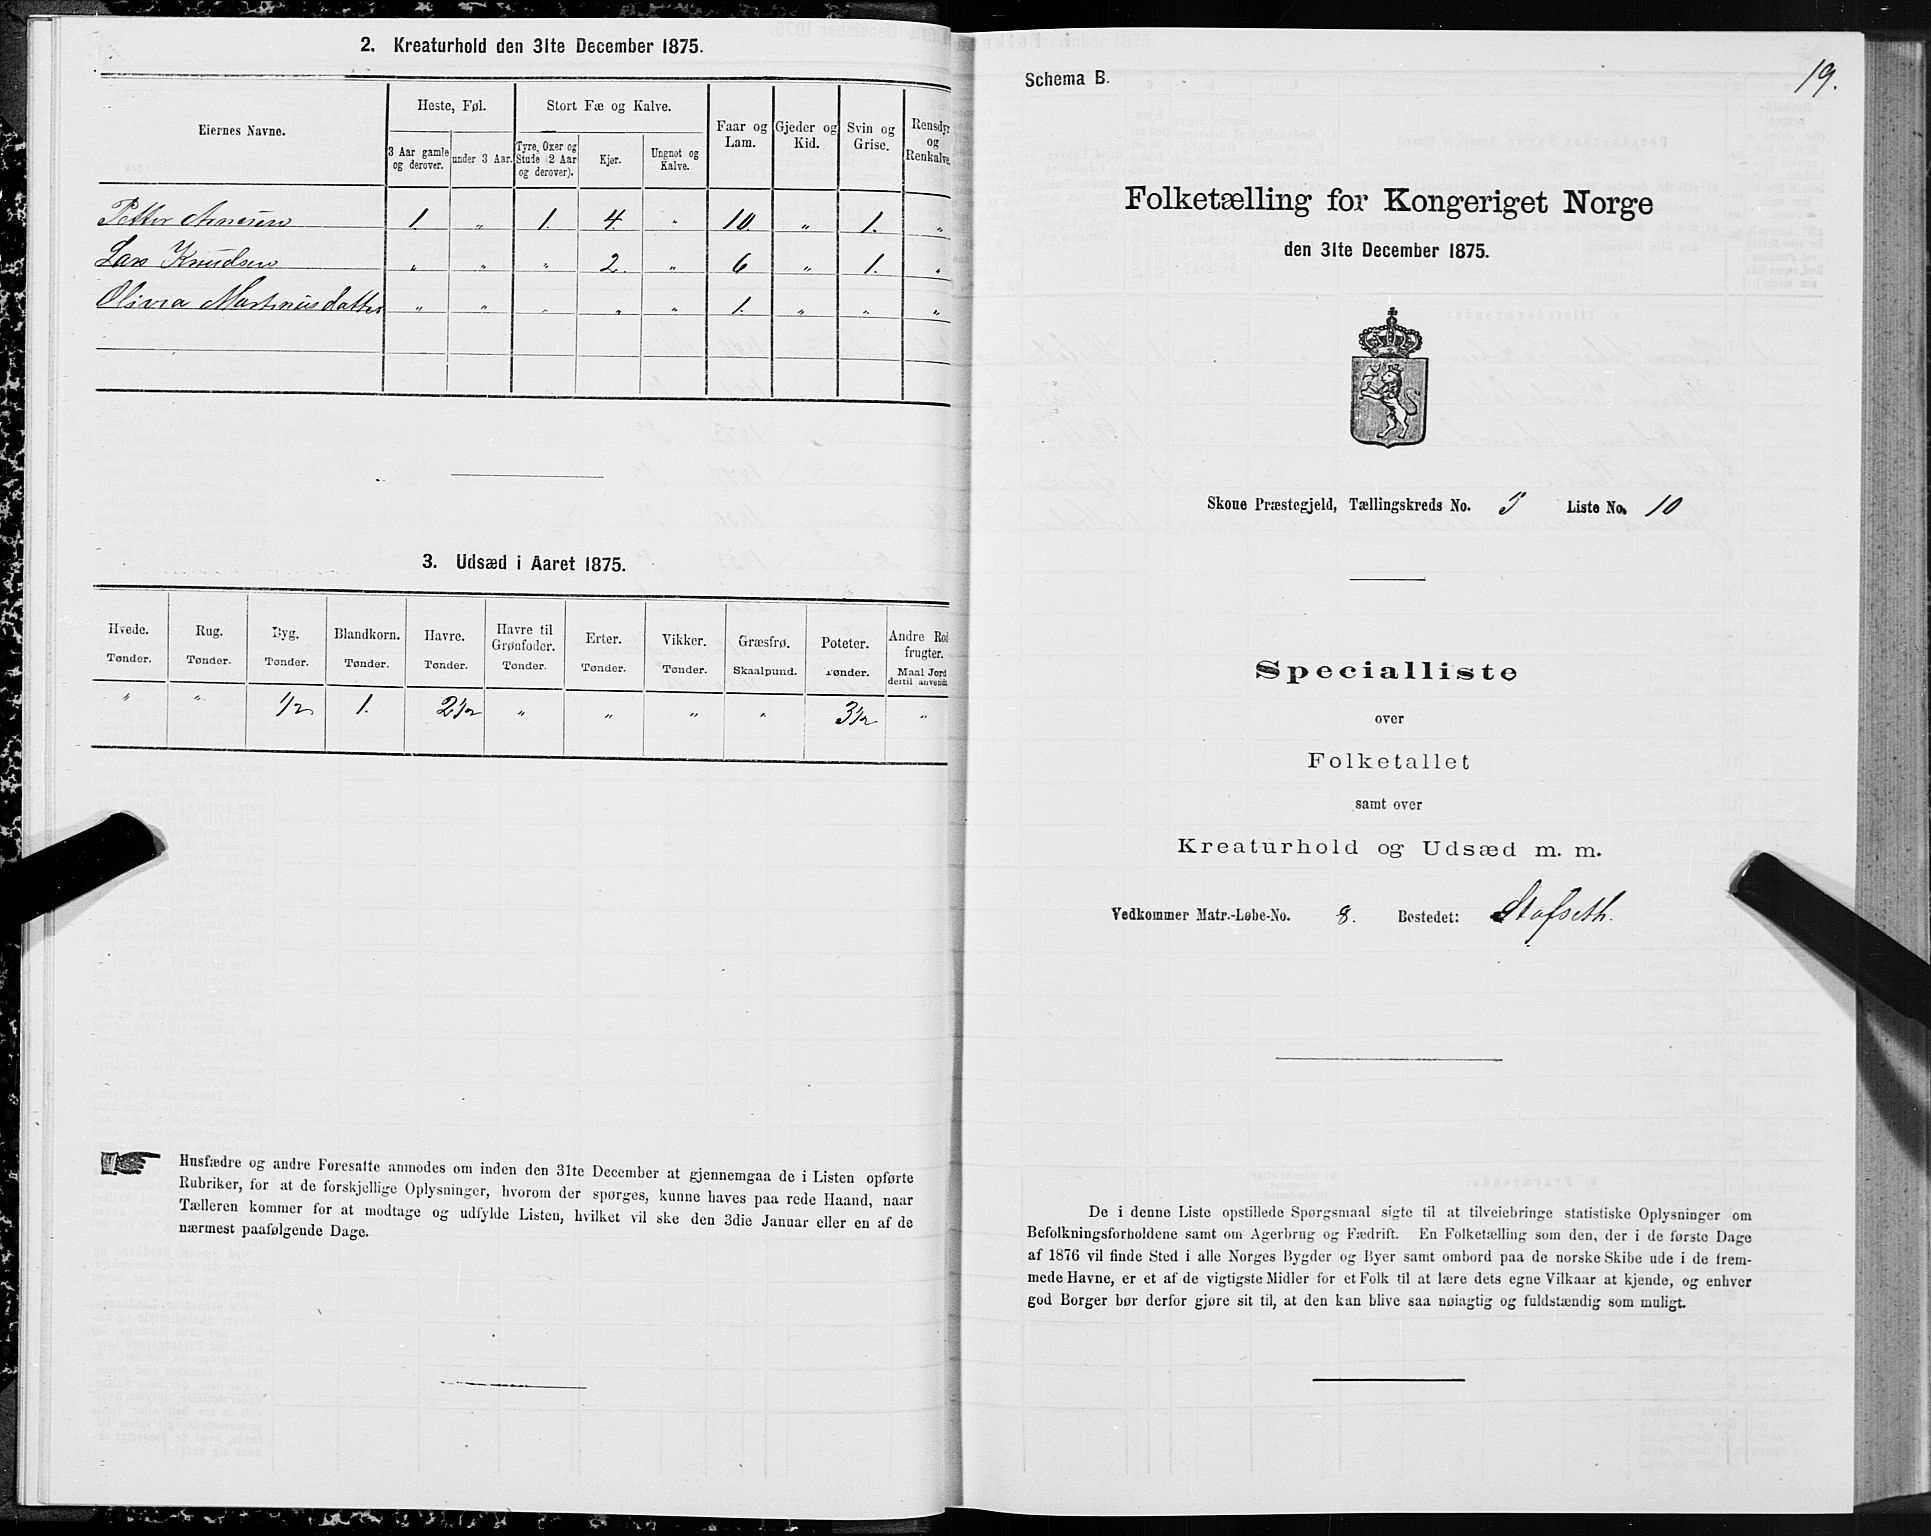 2. Kreaturhold den 31te December 1875.
Eiernes Navne.
Heste, Føl.
Stort Fæ og Kalve.
Faar og Lam.
Gjeder og Kid.
Svin og Grise.
Rensdyr og Renkalve.
3 Aar gamle og derover.
under 3 Aar.
Tyre, Oxer og Stude (2 Aar og derover).
Kjør.
Ungnøt og Kalve.
Petter Arnesen 1. " 1. 4. " 10 " 1. "
Lars Knudsen " " " 2. " 6 " 1. "
Olivia Martinusdatter " " " " " 1. " " "
3. Udsæd i Aaret 1875.
Hvede. Rug. Byg. Blandkorn. Havre. Havre til Grønfoder. Erter. Vikker. Græsfrø. Poteter. Andre Rodfrugter.
Tønder. Tønder. Tønder. Tønder. Tønder. Tønder. Tønder. Tønder. Skaalpund. Tønder. Maal Jord dertil anvendt
" " 1/2 1. 2 1/2 " " " " 3 1/2 "
Husfædre og andre Foresatte anmodes om inden den 31te December at gjennemgaa de i Listen opførte
Rubriker, for at de forskjellige Oplysninger, hvorom der spørges, kunne haves paa rede Haand, naar
Tælleren kommer for at modtage og udfylde Listen, hvilket vil ske den 3die Januar eller en af de
nærmest paafølgende Dage.
Schema B.
19.
Folketælling for Kongeriget Norge
den 31te December 1875.
Skoue Præstegjeld, Tællingskreds No. 5 Liste No. 10
Specialliste
over
Folketallet
samt over
Kreaturhold og Udsæd m. m.
Vedkommer Matr.-Løbe-No. 8. Bostedet: Stafseth.
De i denne Liste opstillede Spørgsmaal sigte til at tilveiebringe statistiske Oplysninger om
Befolkningsforholdene samt om Agerbrug og Fædrift. En Folketælling som den, der i de første Dage
af 1876 vil finde Sted i alle Norges Bygder og Byer samt ombord paa de norske Skibe ude i de frem-
mede Havne, er et af de vigtigste Midler for et Folk til at lære dets egne Vilkaar at kjende, og enhver
god Borger bør derfor gjøre sit til, at den kan blive saa nøiagtig og fuldstændig som muligt.